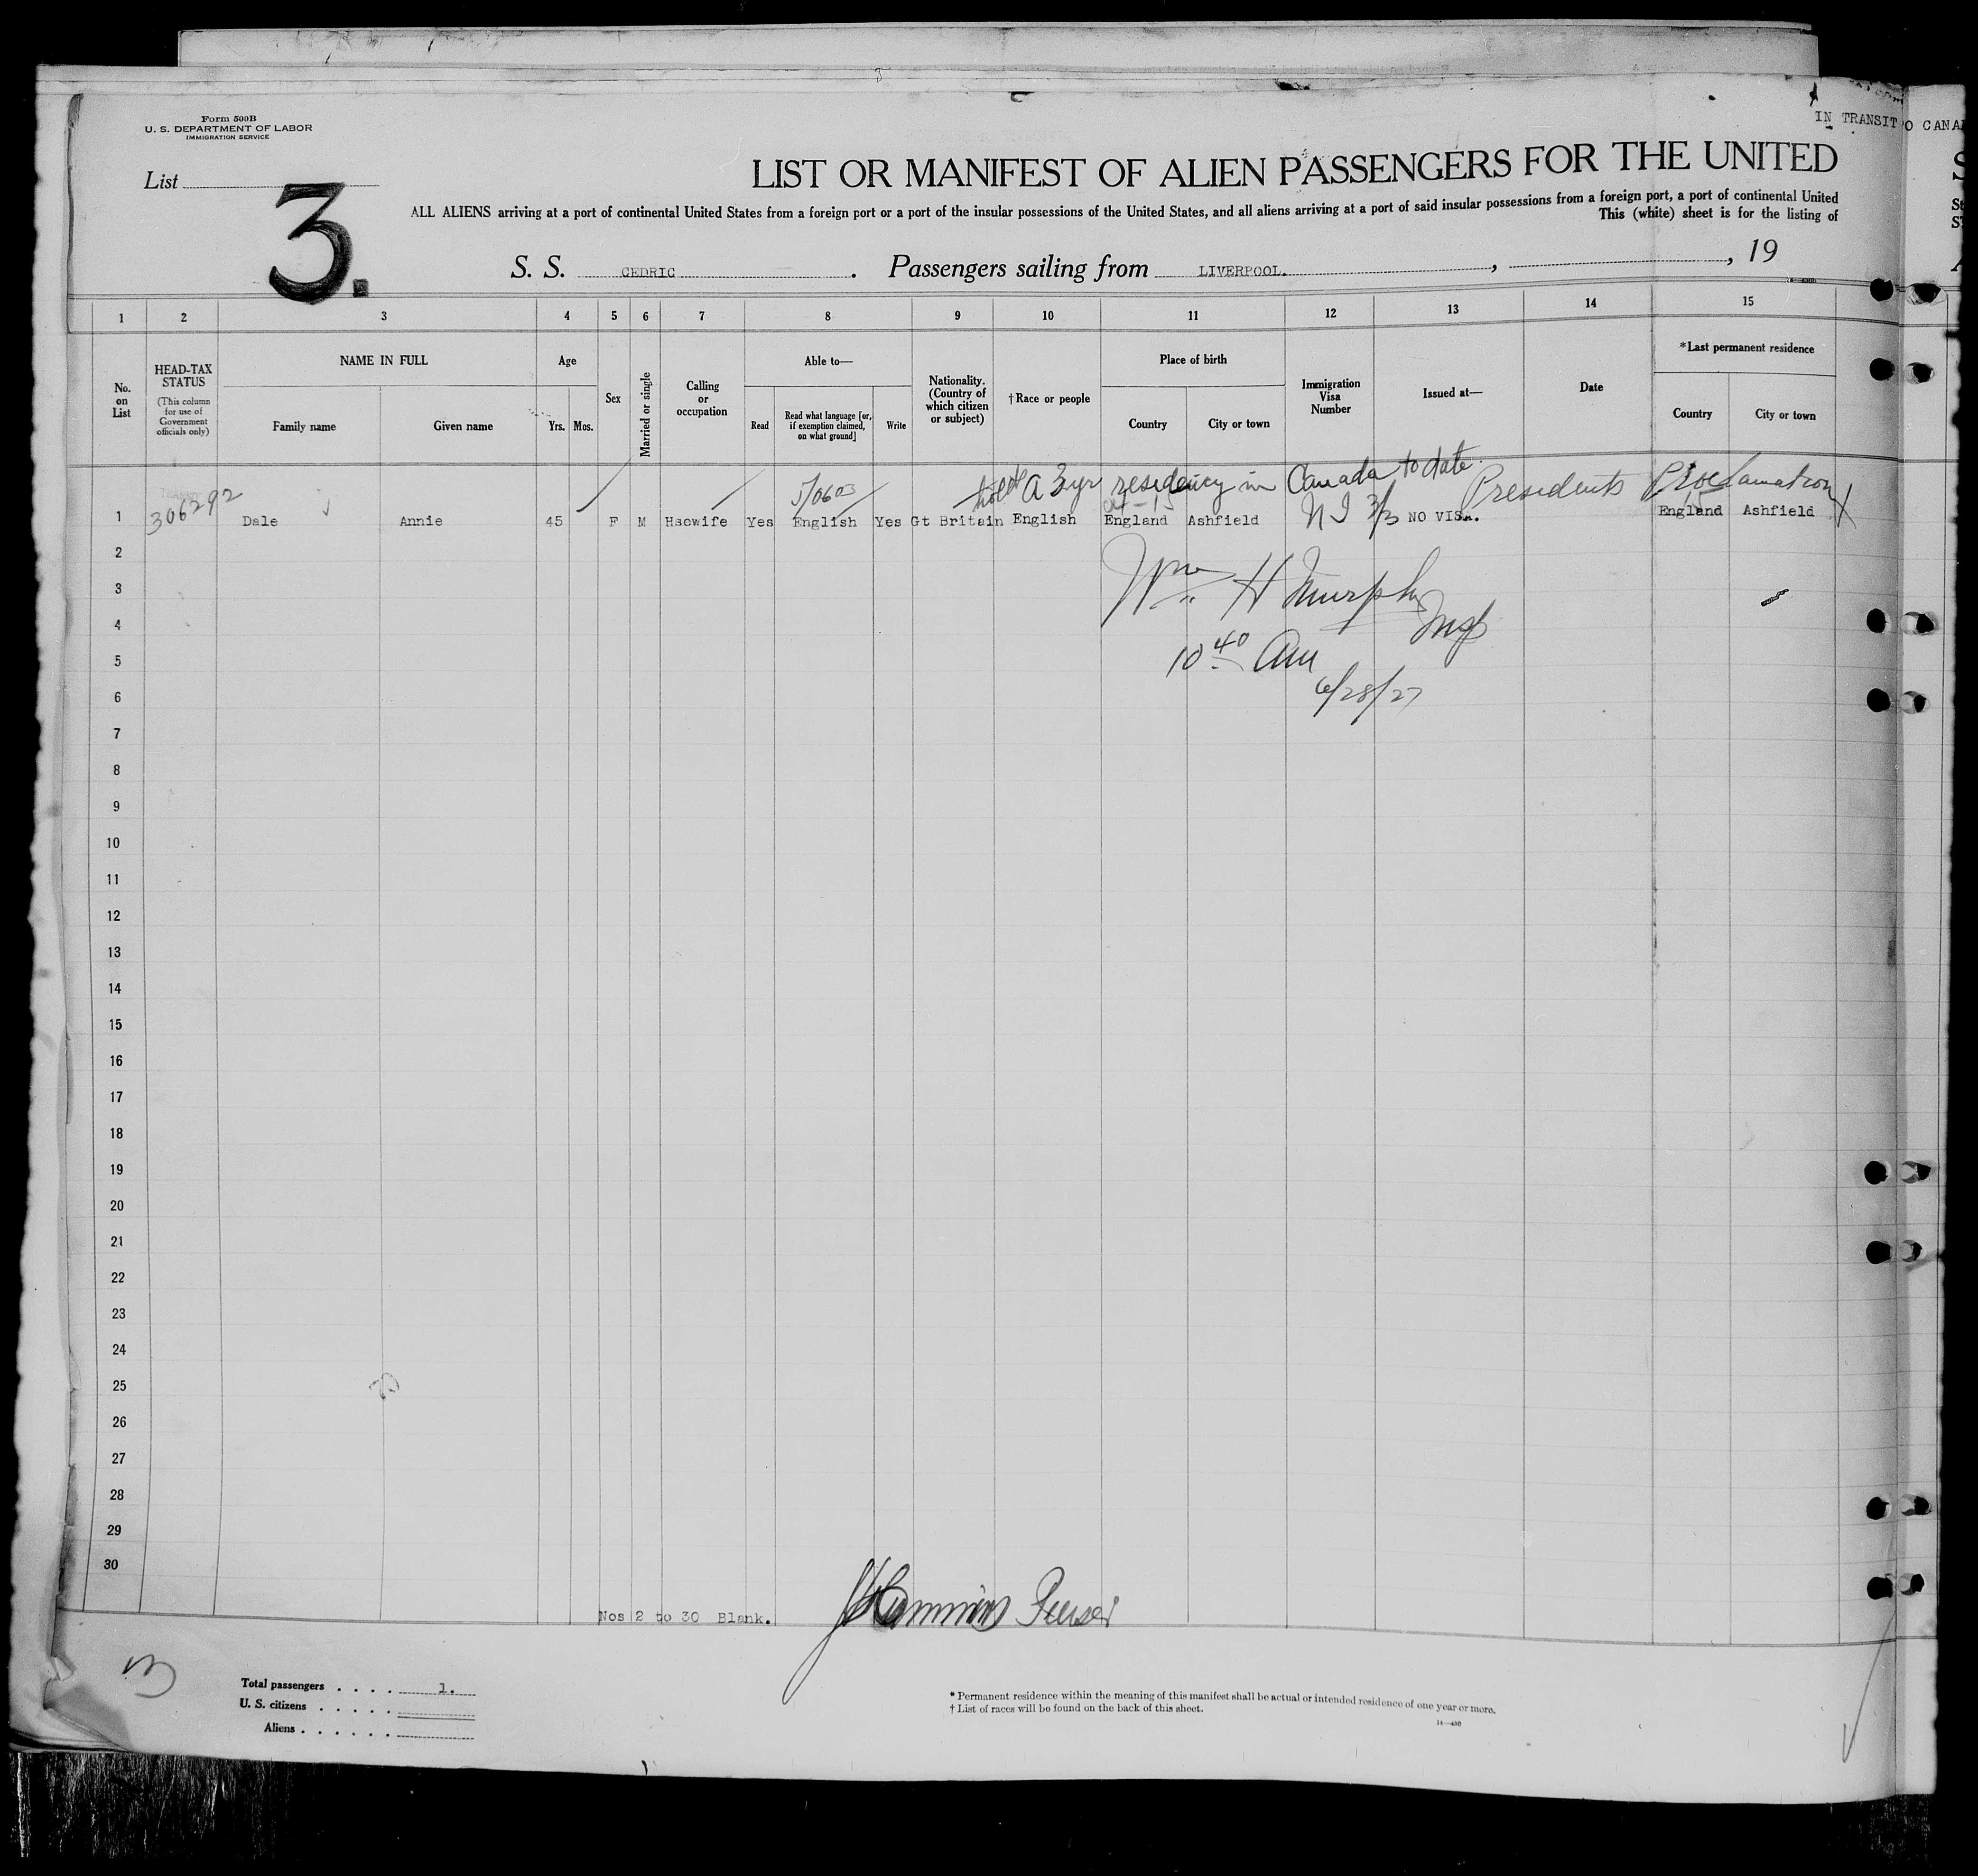 Form 500B
U. S. DEPARTMENT OF LABOR
IMMIGRATION SERVICE
IN TRANSIT O CANA
List
3.
LIST OR MANIFEST OF ALIEN PASSENGERS FOR THE UNITED
ALL ALIENS arriving at a port of continental United States from a foreign port or a port of the insular possessions of the United States, and all aliens arriving at a port of said insular possessions from a foreign port, a port of continental United
This (white) sheet is for the listing of
S. S. CEDRIC . Passengers sailing from LIVERPOOL. , , 19
1 2 3 4 5 6 7 8 9 10 11 12 13 14 15
No. on List
HEAD-TAX STATUS
(This column for use of Government officials only)
NAME IN FULL
Family name
Given name
Age
Yrs. Mos.
Sex
Married or single
Calling or occupation
Able to—
Read
Read what language [or, if exemption claimed, on what ground]
Write
Nationality. (Country of which citizen or subject)
†Race or people
Place of birth
Country
City or town
Immigration Visa Number
Issued at—
Date
*Last permanent residence
Country
City or town
a 3 yr residency in Canada to date. Presidents Proclamation
306292
1 Dale Annie 45 F M Hsewife Yes English Yes Gt Britain English England Ashfield N I 3/3 NO VISA. England Ashfield
2
Wm H Murphy
3
Insp
4
10 40 Am
5
6/28/27
6
7
8
9
10
11
12
13
14
15
16
17
18
19
20
21
22
23
24
25
26
27
28
29
30
Nos 2 to 30 Blank.
Cummins Purser
3
Total passengers . . . . 1.
U. S. citizens . . . . .
Aliens . . . . . .
* Permanent residence within the meaning of this manifest shall be actual or intended residence of one year or more.
† List of races will be found on the back of this sheet.
14—430